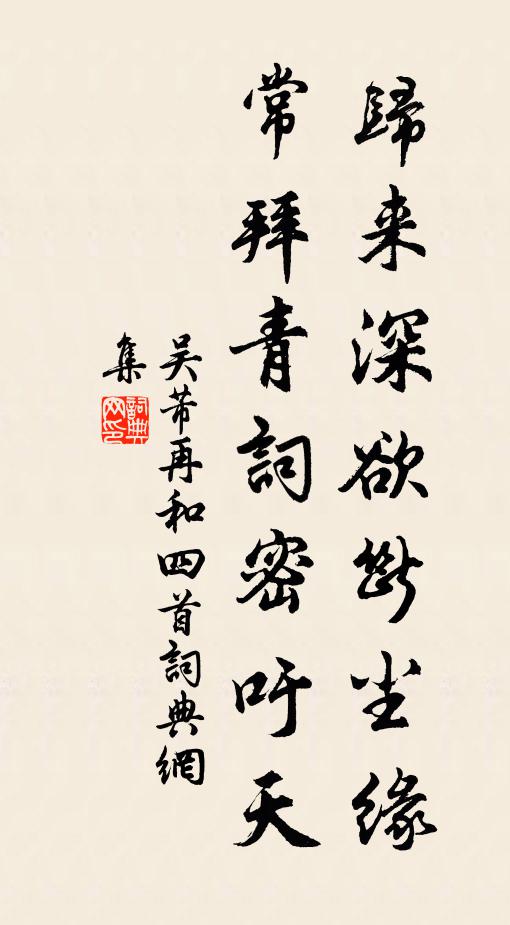 歸来深欲斷尘緣
常拜青詞密吁天
吴芾再和四首詞典網
集
詞典网印